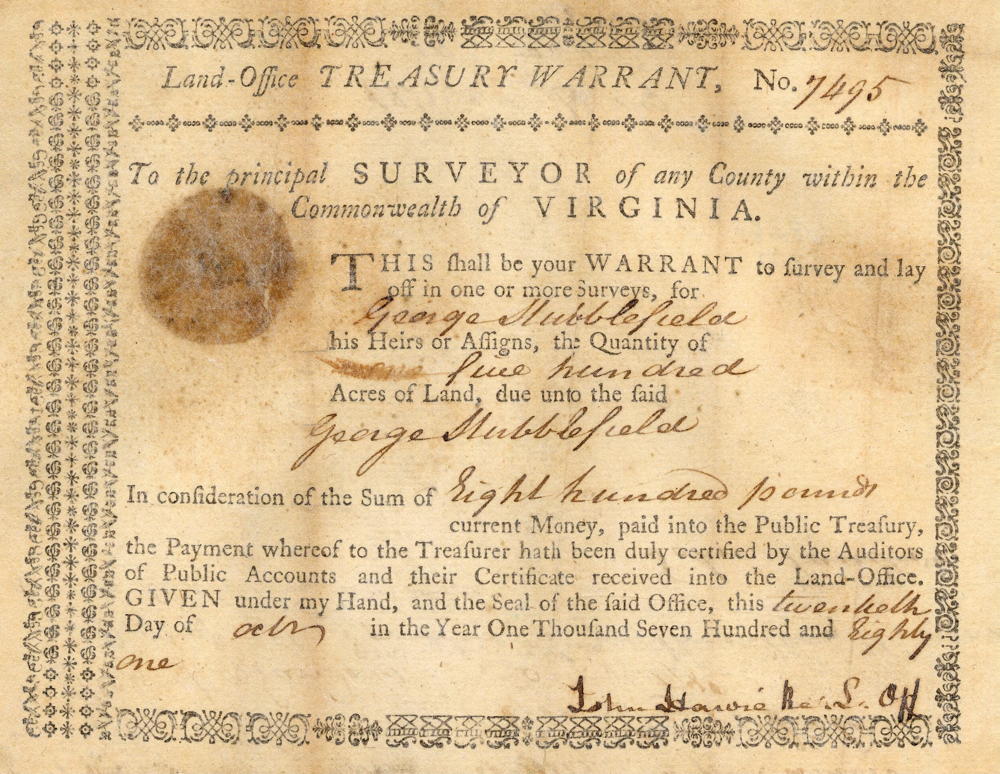 Land-Office TREASURY WARRANT, No. 7495
To the principal SURVEYOR of any County within the
Commonwealth of VIRGINIA.
THIS ſhall be your WARRANT to ſurvey and lay
off in one or more Surveys, for
George Stubblefield
his Heirs or Aſſigns, the Quantity of
five hundred
Acres of Land, due unto the ſaid
George Stubblefield
In conſideration of the Sum of Eight hundred pounds
current Money, paid into the Public Treaſury,
the Payment whereof to the Treaſurer hath been duly certified by the Auditors
of Public Accounts and their Certificate received into the Land-Office.
GIVEN under my Hand, and the Seal of the ſaid Office, this twentieth
Day of octr in the Year One Thouſand Seven Hundred and Eighty
one
John Harvie Re. L. Off